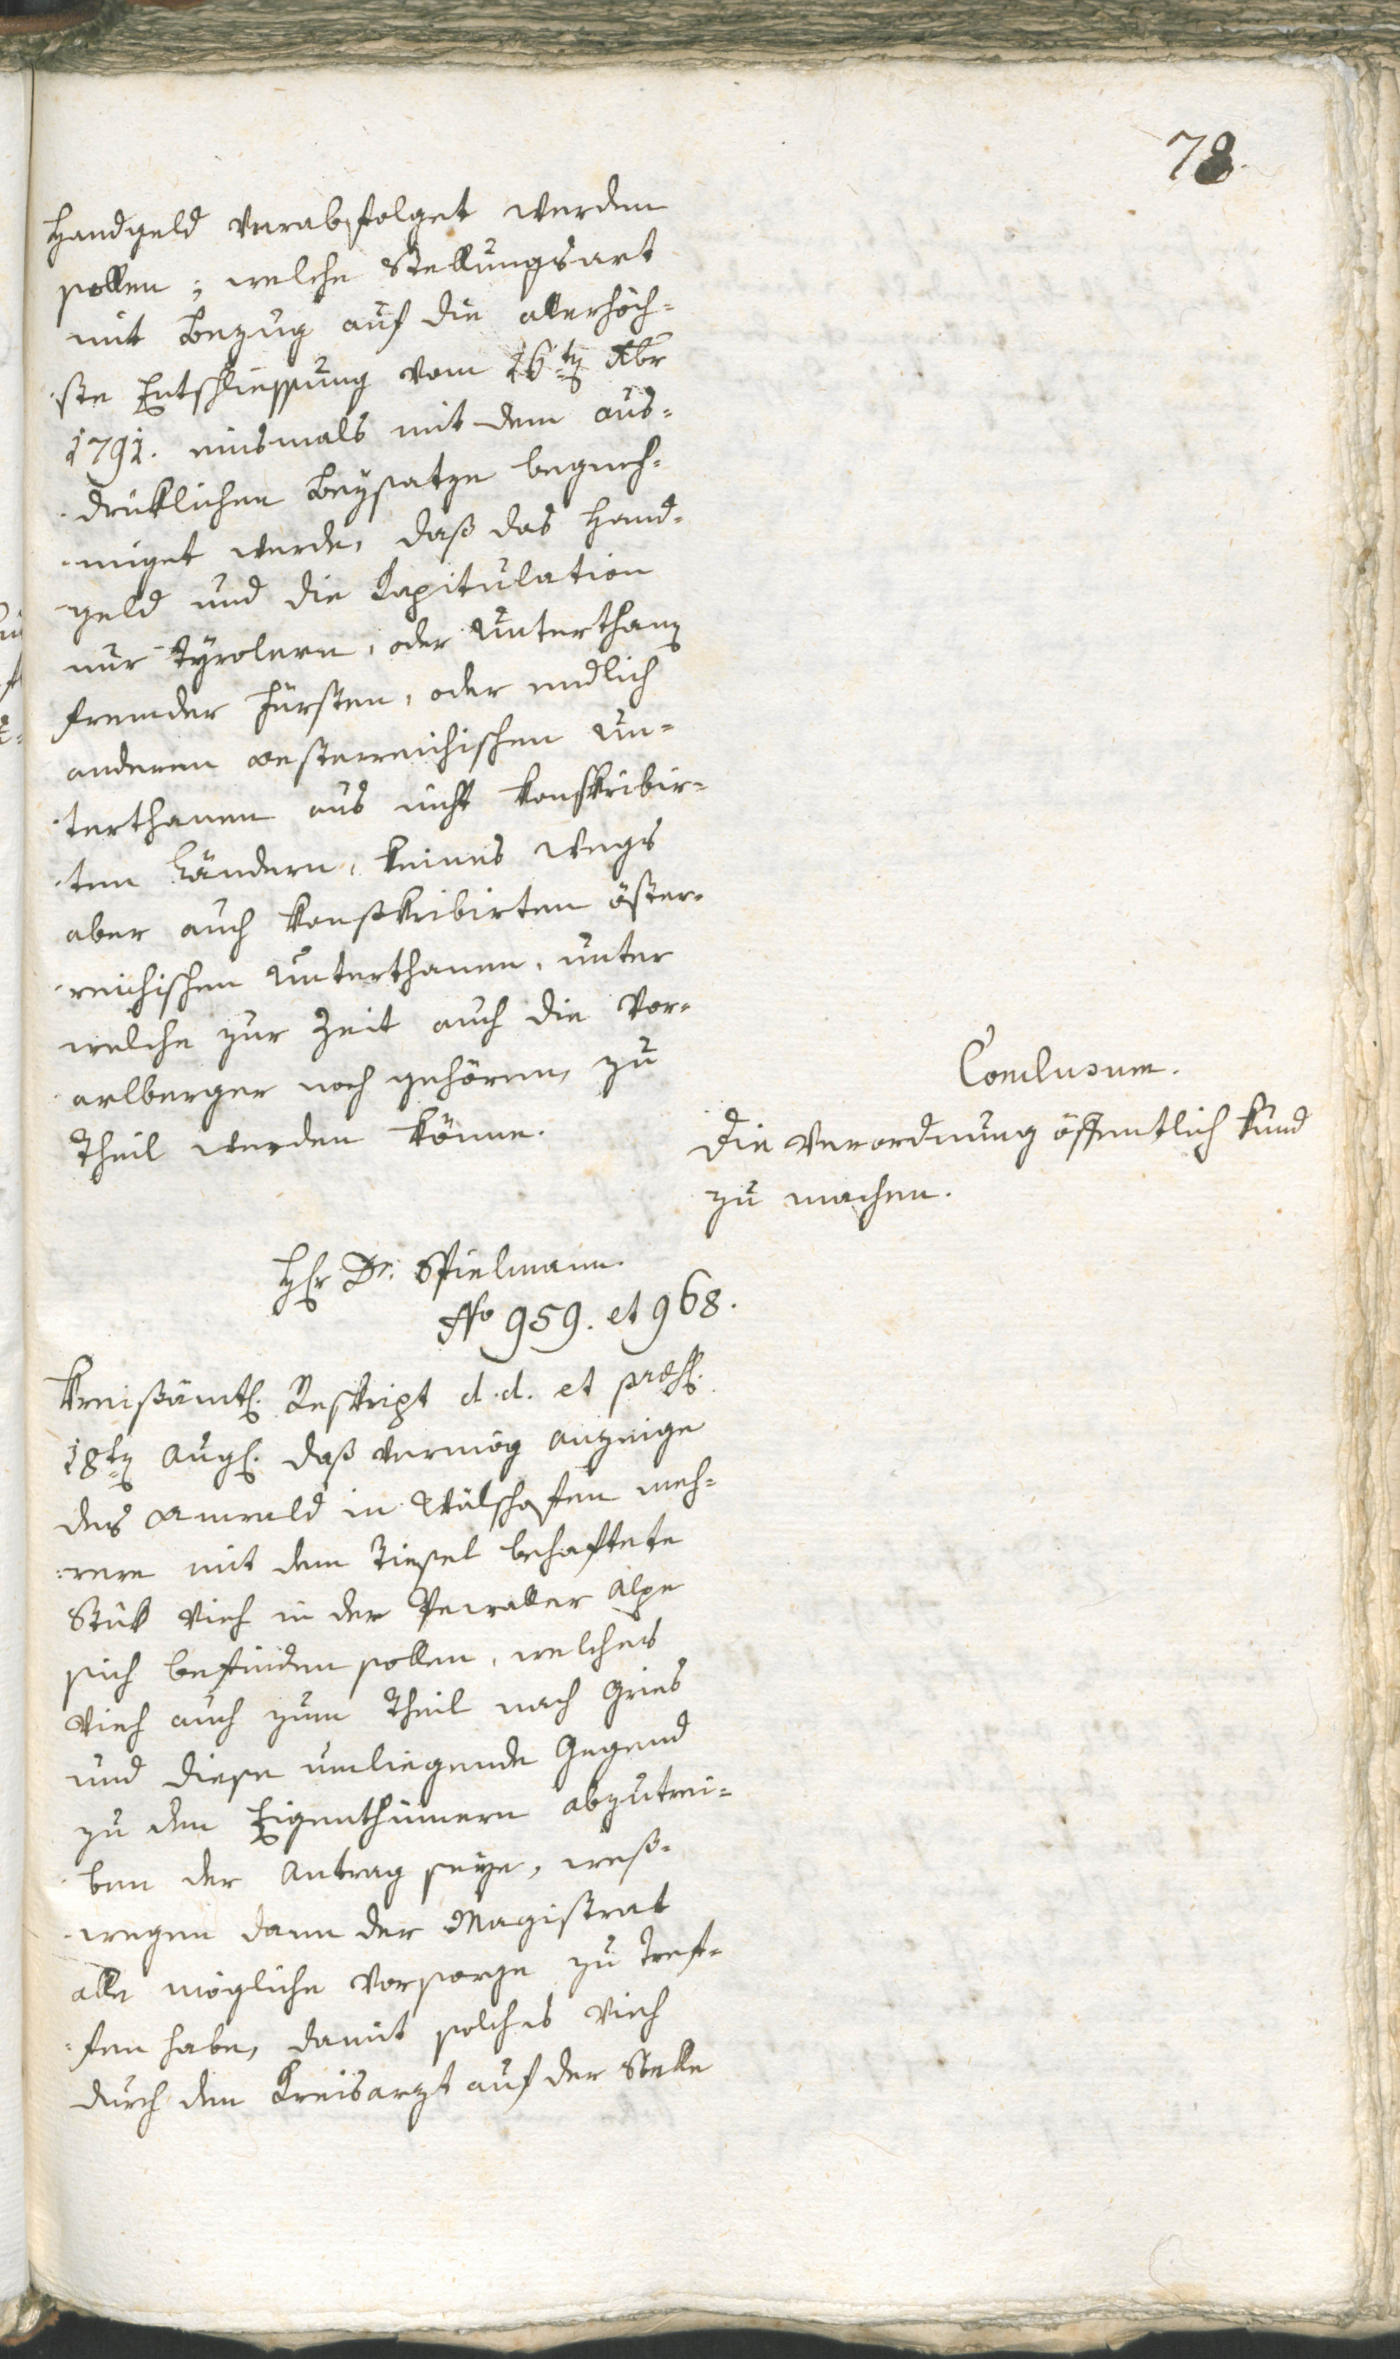 78.
Handgeld verabfolget werden
sollen; welche Stellungsart
mit Bezug auf die allerhöch-
ste Entschliessung vom 26ten
1791. einsmals mit dem aus-
drüklichen Beysatze begneh-
miget werde, daß das Hand-
geld und die Kapitulation
nur Tyrolern, oder Unterthanen
fremder Fürsten, oder endlich
anderen oesterreichischen Un-
terthanen aus nicht konskribir-
ten Ländern, keines wegs
aber auch konskribirten öster-
reichischen Unterthanen, unter
welche zur Zeit auch die Vor-
arlberger noch gehören, zu
Theil werden könne.
Conclusum.
Die Verordnung öffentlich kund
zu machen.
Hr Dr. Spielmann.
No 959. et 968.
Kreisämtl. Reskript d. d. et praes.
18ten Aug. daß vermög Anzeige
des Anwald in meh-
rere mit dem behaftete
Stük Vieh in der Alpe
sich befinden sollen, welches
Vieh auch zum Theil nach Gries
und diese umliegende Gegend
zu den Eigenthümern abzutrei-
ben der Antrag seye, weß-
wegen dann der Magistrat
alle mögliche Vorsorge zu tref-
fen habe, damit solches Vieh
durch den Kreisarzt auf der Stelle